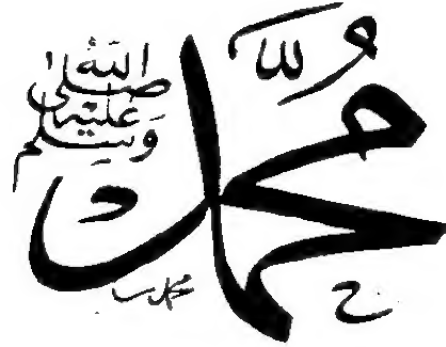 مُحَمَّد
صلى الله
عليه
وسلم